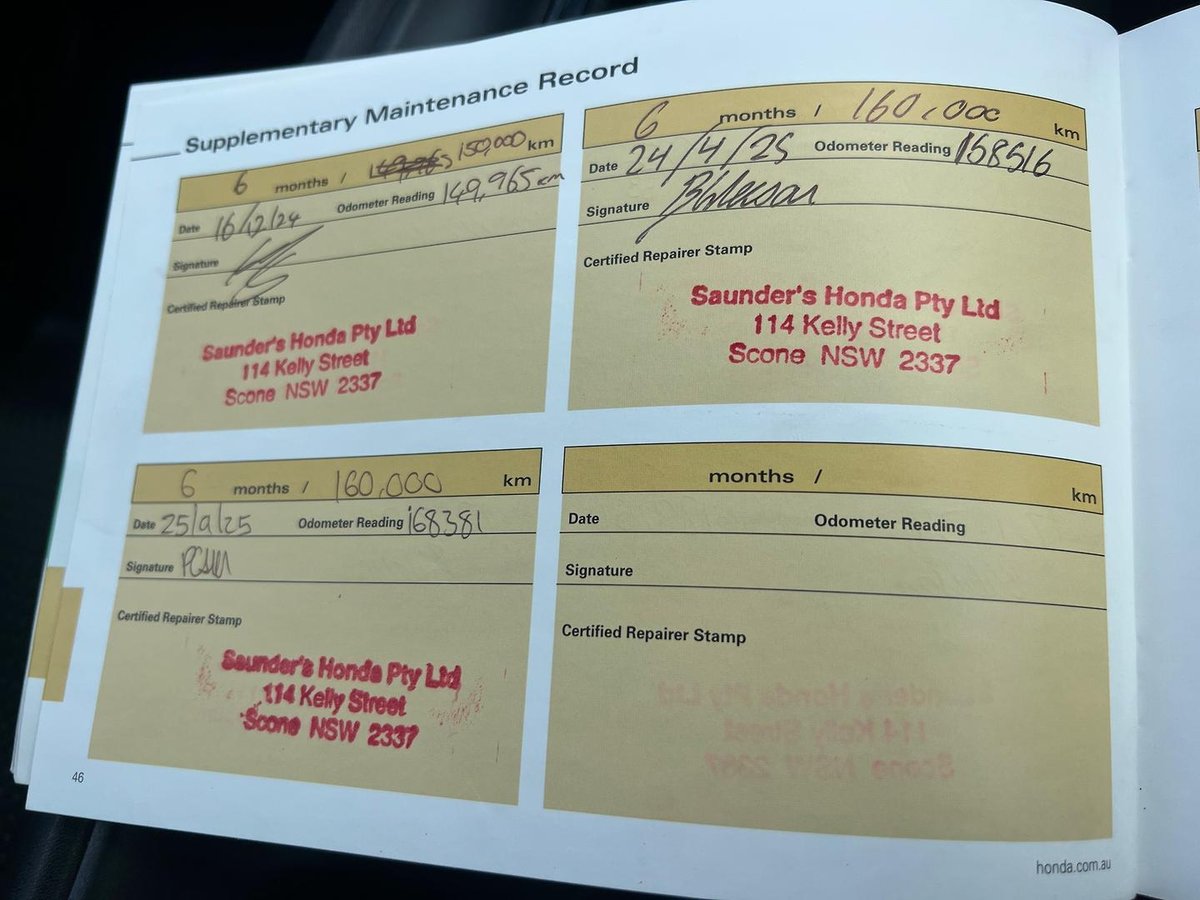 Supplementary Maintenance Record
6 months / 150,000 km
Date 16/12/24 Odometer Reading 149,965 km
Signature
Certified Repairer Stamp
Saunder's Honda Pty Ltd
114 Kelly Street
Scone NSW 2337
6 months / 160,000 km
Date 24/4/25 Odometer Reading 158516
Signature
Certified Repairer Stamp
Saunder's Honda Pty Ltd
114 Kelly Street
Scone NSW 2337
6 months / 160,000 km
Date 25/9/25 Odometer Reading 168381
Signature
Certified Repairer Stamp
Saunder's Honda Pty Ltd
114 Kelly Street
Scone NSW 2337
months / km
Date Odometer Reading
Signature
Certified Repairer Stamp
46
honda.com.au